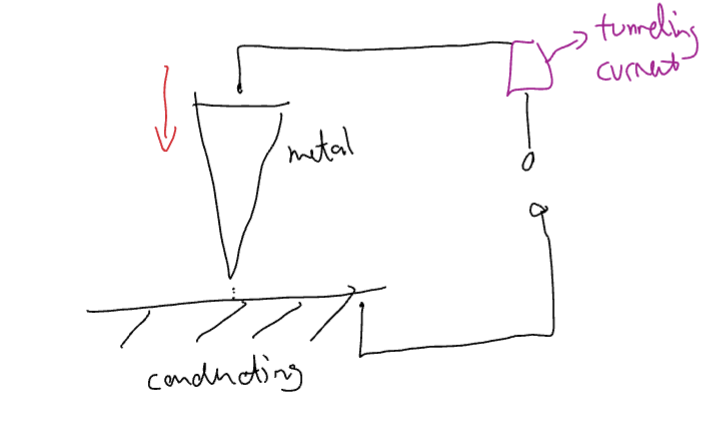 tunneling
current
metal
conducting